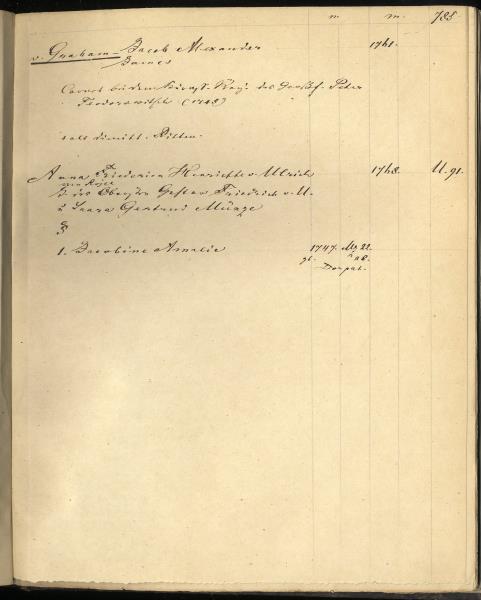 m. m. 785
v. Graham Jacob Alexander 1761.
James
Cornet bei dem Kürass. Reg. des Großf. Peter
Feodorowitsch (1748)
als dimitt. Rittm.
Anna Friederica Henriette v. Ulrich 1768. U. 91.
des Gustav Friedrich v. U.
u. Gertrud Münze
1. Jacobine Amalie 1747. Mz 22.
gt. 28.
Dorpat.